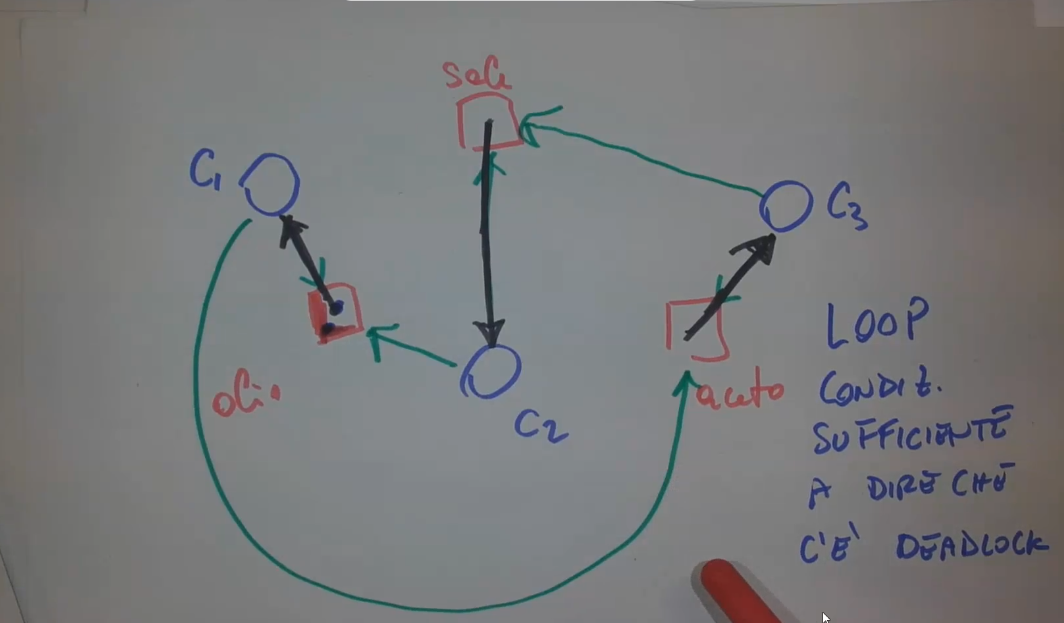 sale
C1
C3
olio
aceto
C2
LOOP
CONDIZ.
SUFFICIENTE
A DIRE CHE
C'E' DEADLOCK